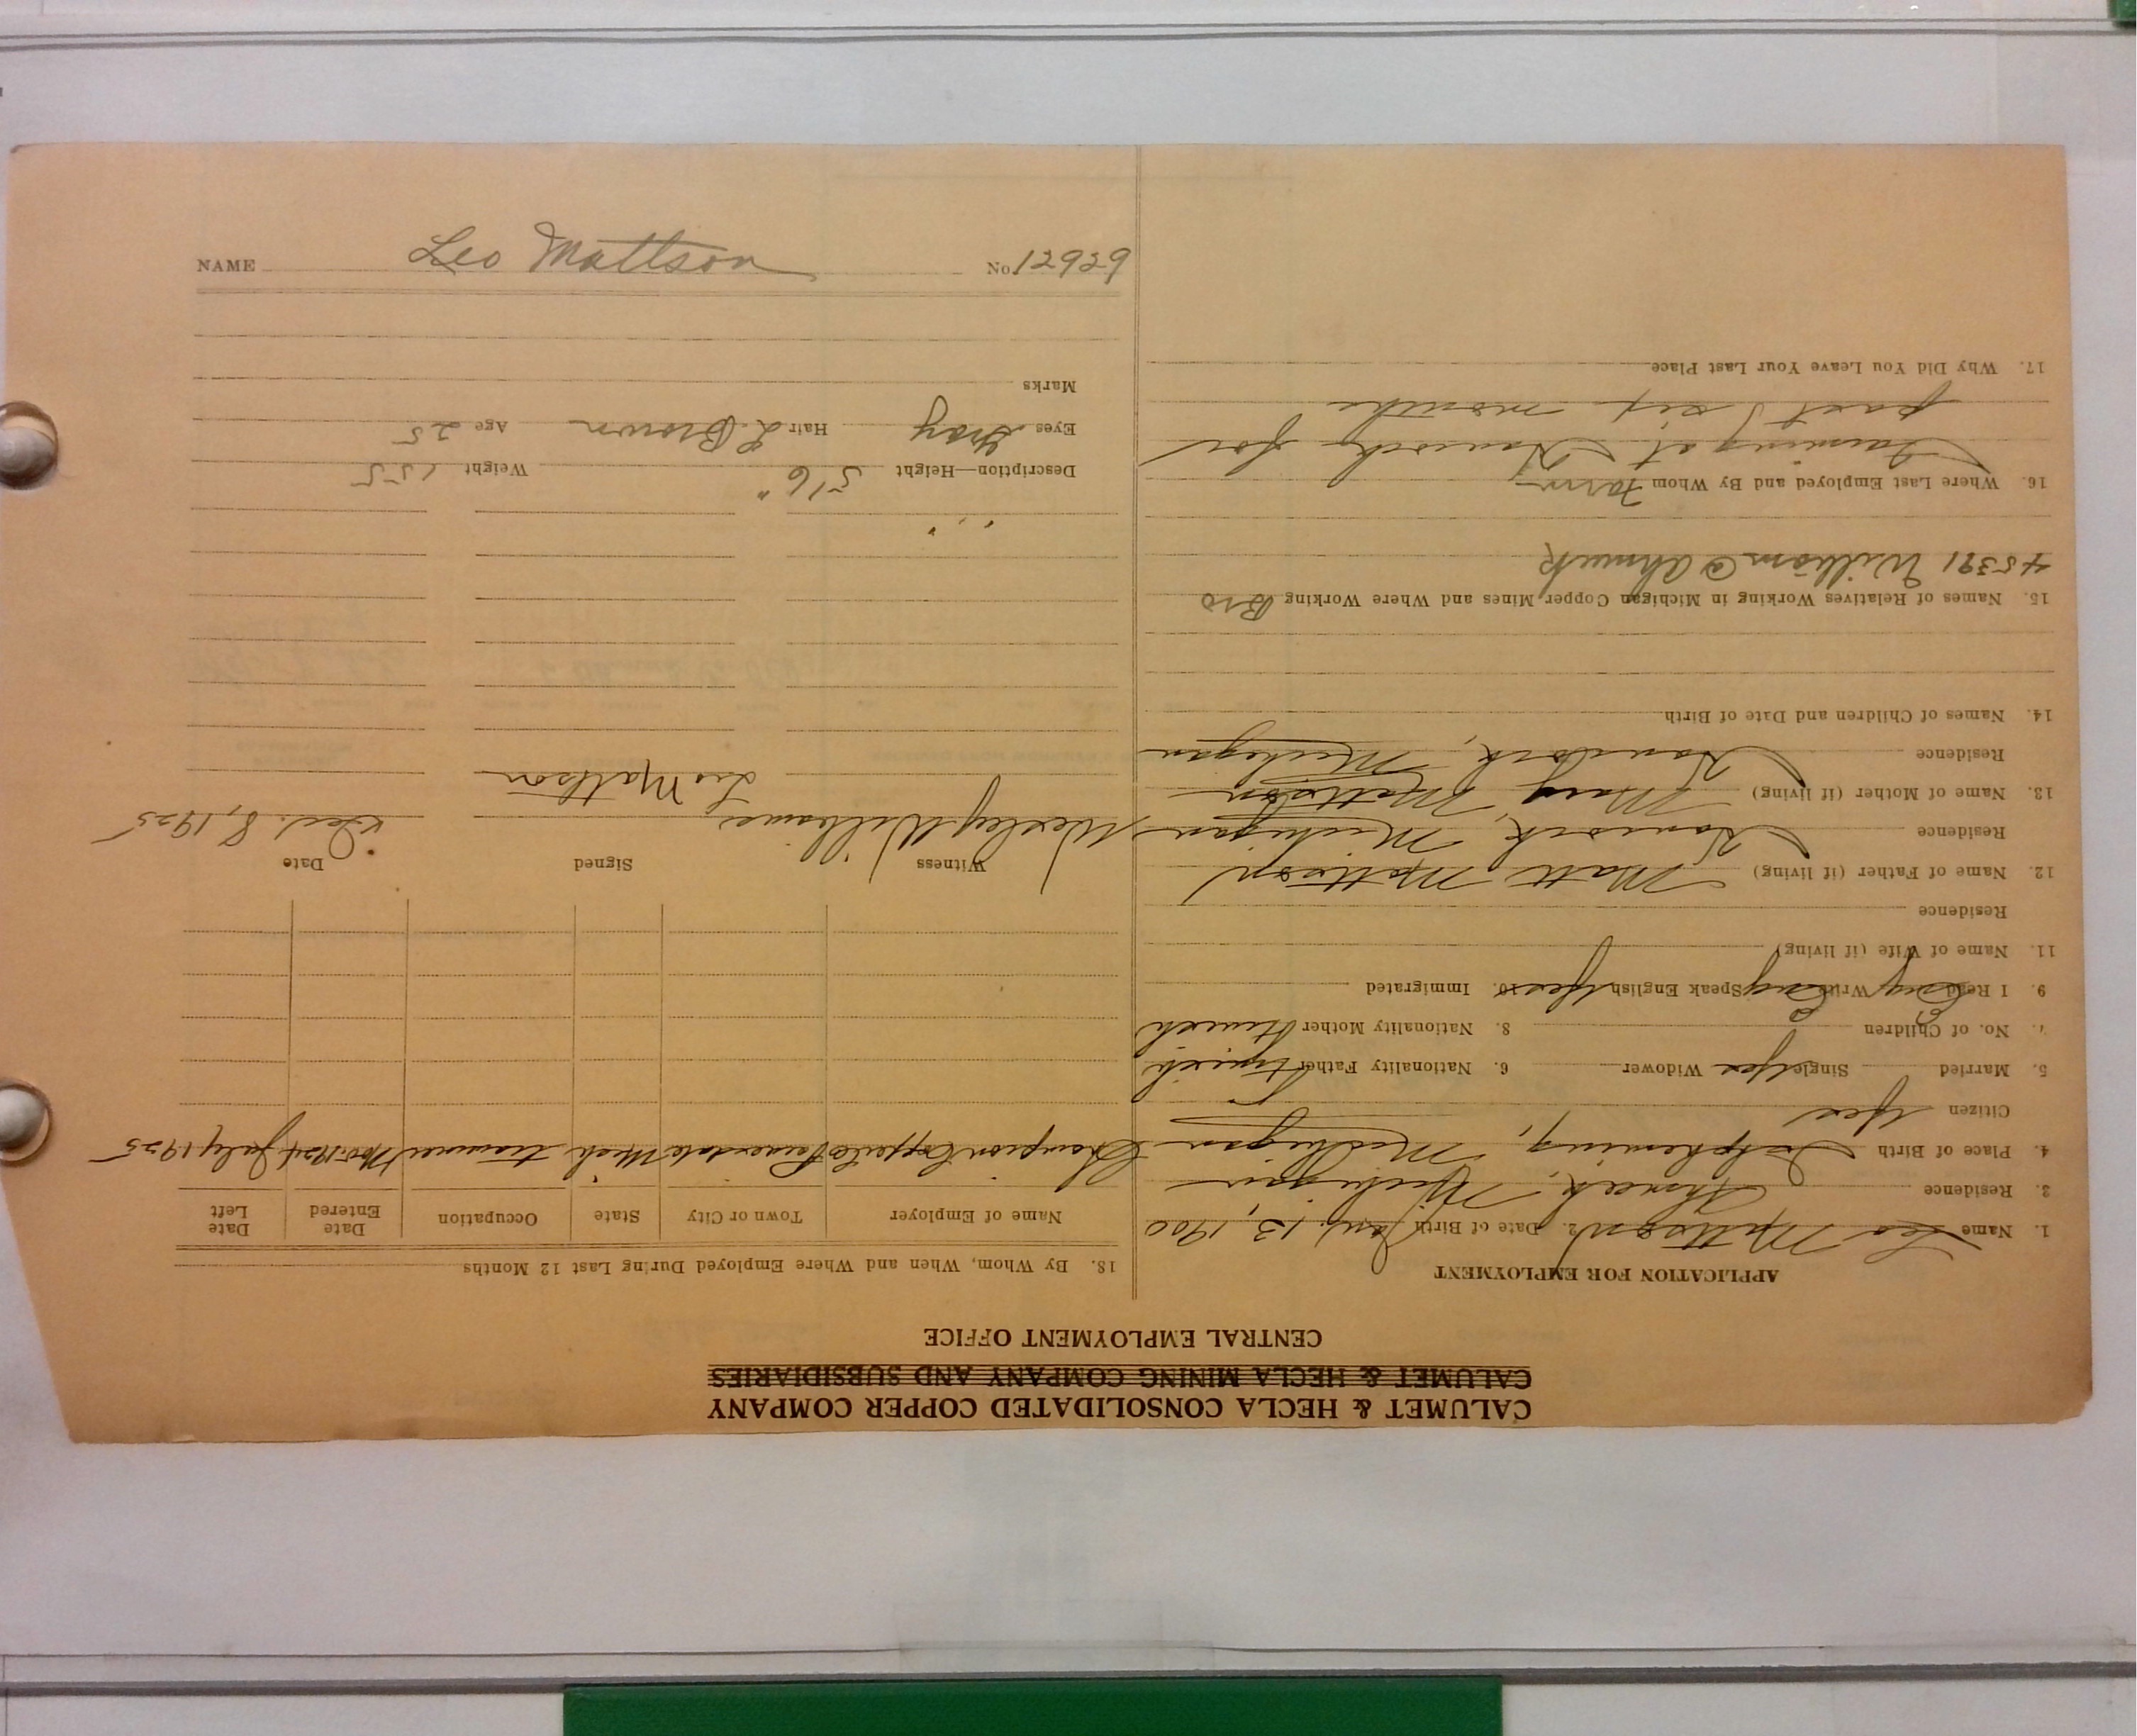 CALUMET & HECLA CONSOLIDATED COPPER COMPANY
CALUMET & HECLA MINING COMPANY AND SUBSIDIARIES
CENTRAL EMPLOYMENT OFFICE
APPLICATION FOR EMPLOYMENT
1. Name Leo Mattson 2. Date of Birth Jan. 13, 1900
3. Residence Ahmeek, Michigan
4. Place of Birth Ishpeming, Michigan
Citizen Yes
5. Married Single Yes Widower 6. Nationality Father Finnish
7. No. of Children 8. Nationality Mother Finnish
9. I Read Eng Write Eng Speak English Yes 10. Immigrated
11. Name of Wife (if living)
Residence
12. Name of Father (if living) Matt Mattson
Residence Hancock, Michigan
13. Name of Mother (if living) Mary Mattson
Residence Hancock, Michigan
14. Names of Children and Date of Birth
15. Names of Relatives Working in Michigan Copper Mines and Where Working Bro
45391 William @ Ahmeek
16. Where Last Employed and By Whom Farm
Farming at Hancock for
past six months
17. Why Did You Leave Your Last Place
18. By Whom, When and Where Employed During Last 12 Months
Name of Employer Town or City State Occupation Date Entered Date Left
Champion Copper Co Painesdale Mich trammer Nov. 1924 July 1925
Witness Signed Date
Wesley Williams Leo Mattson Dec. 8, 1925
Description—Height 5'6" Weight 155
Eyes Gray Hair L. Brown Age 25
Marks
NAME Leo Mattson No. 12929